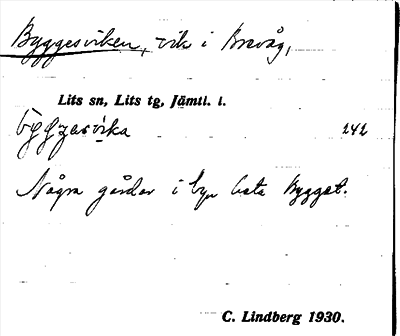 Byggesviken, vik i Bredvåg,
Lits sn, Lits tg, Jämtl. l.
242
Några gårdar i byn heta Bygget.
C. Lindberg 1930.